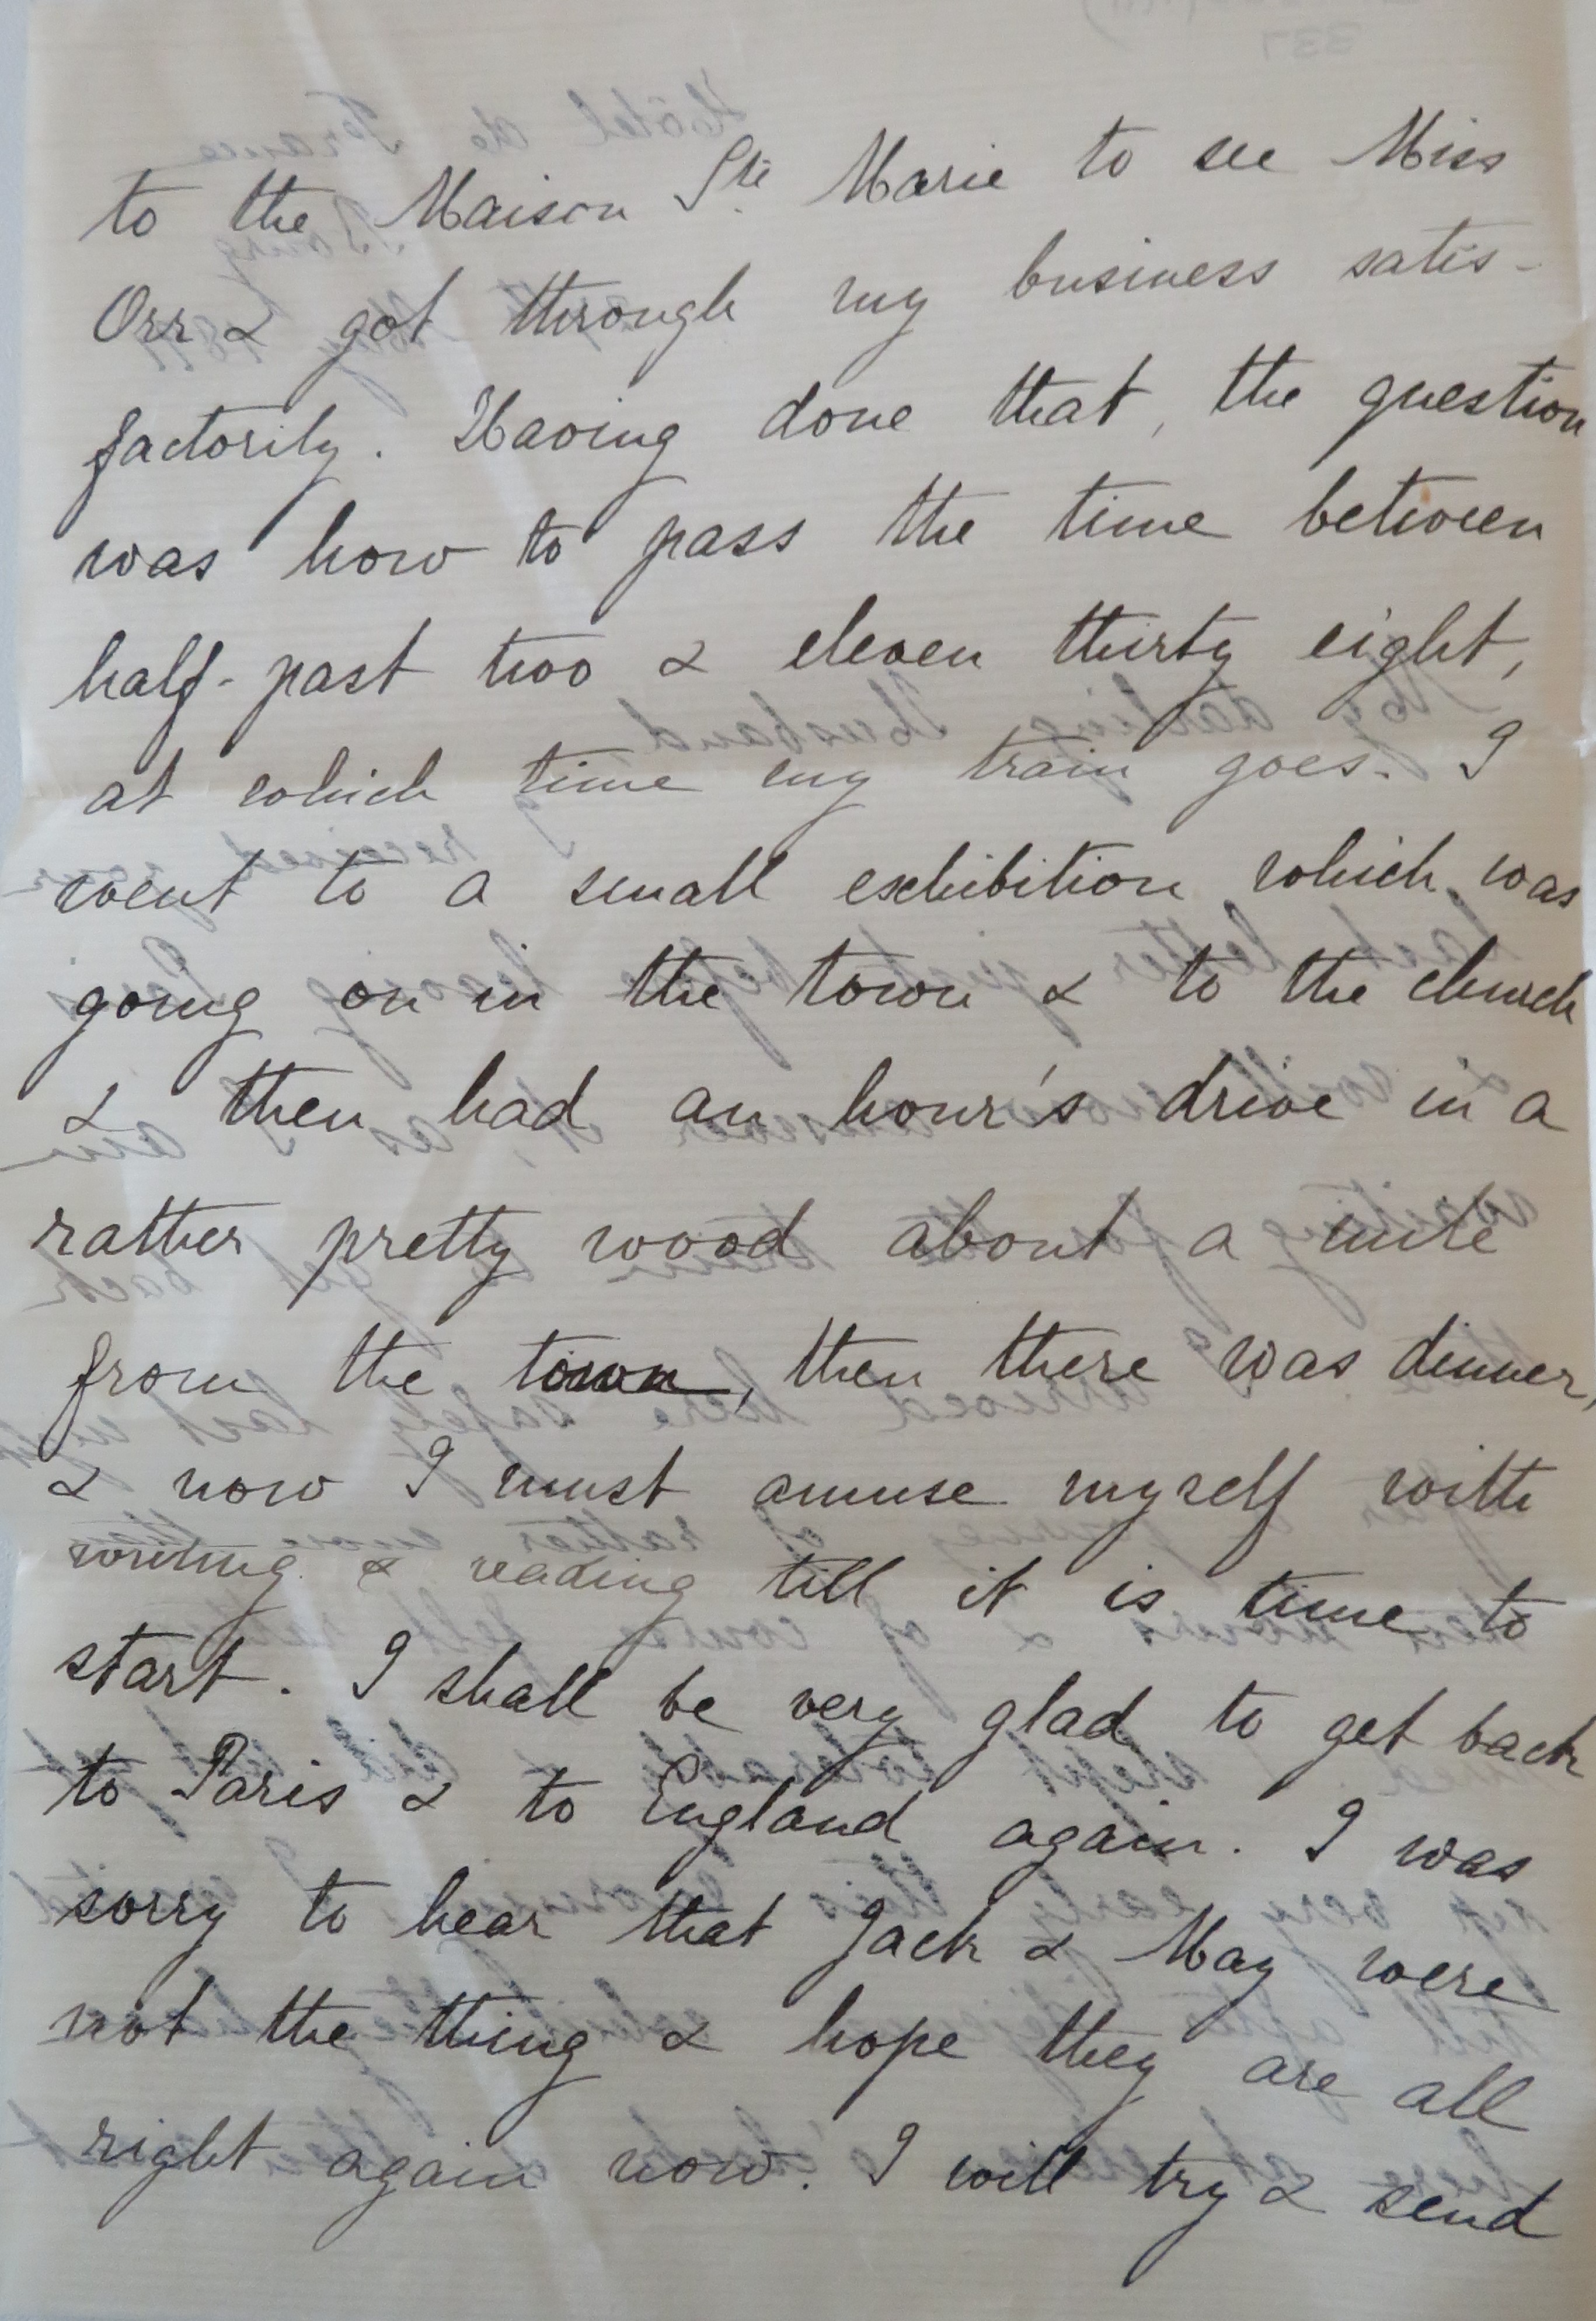 to the Maison Ste Marie to see Miss
Orr & got through my business satis-
factorily. Having done that, the question
was how to pass the time between
half-past two & eleven thirty eight,
at which time my train goes. I
went to a small exhibition which was
going on in the town & to the church
& then had an hour's drive in a
rather pretty wood about a mile
from the town, then there was dinner,
& now I must amuse myself with
writing & reading till it is time to
start. I shall be very glad to get back
to Paris & to England again. I was
sorry to hear that Jack & May were
not the thing & hope they are all
right again now. I will try & send